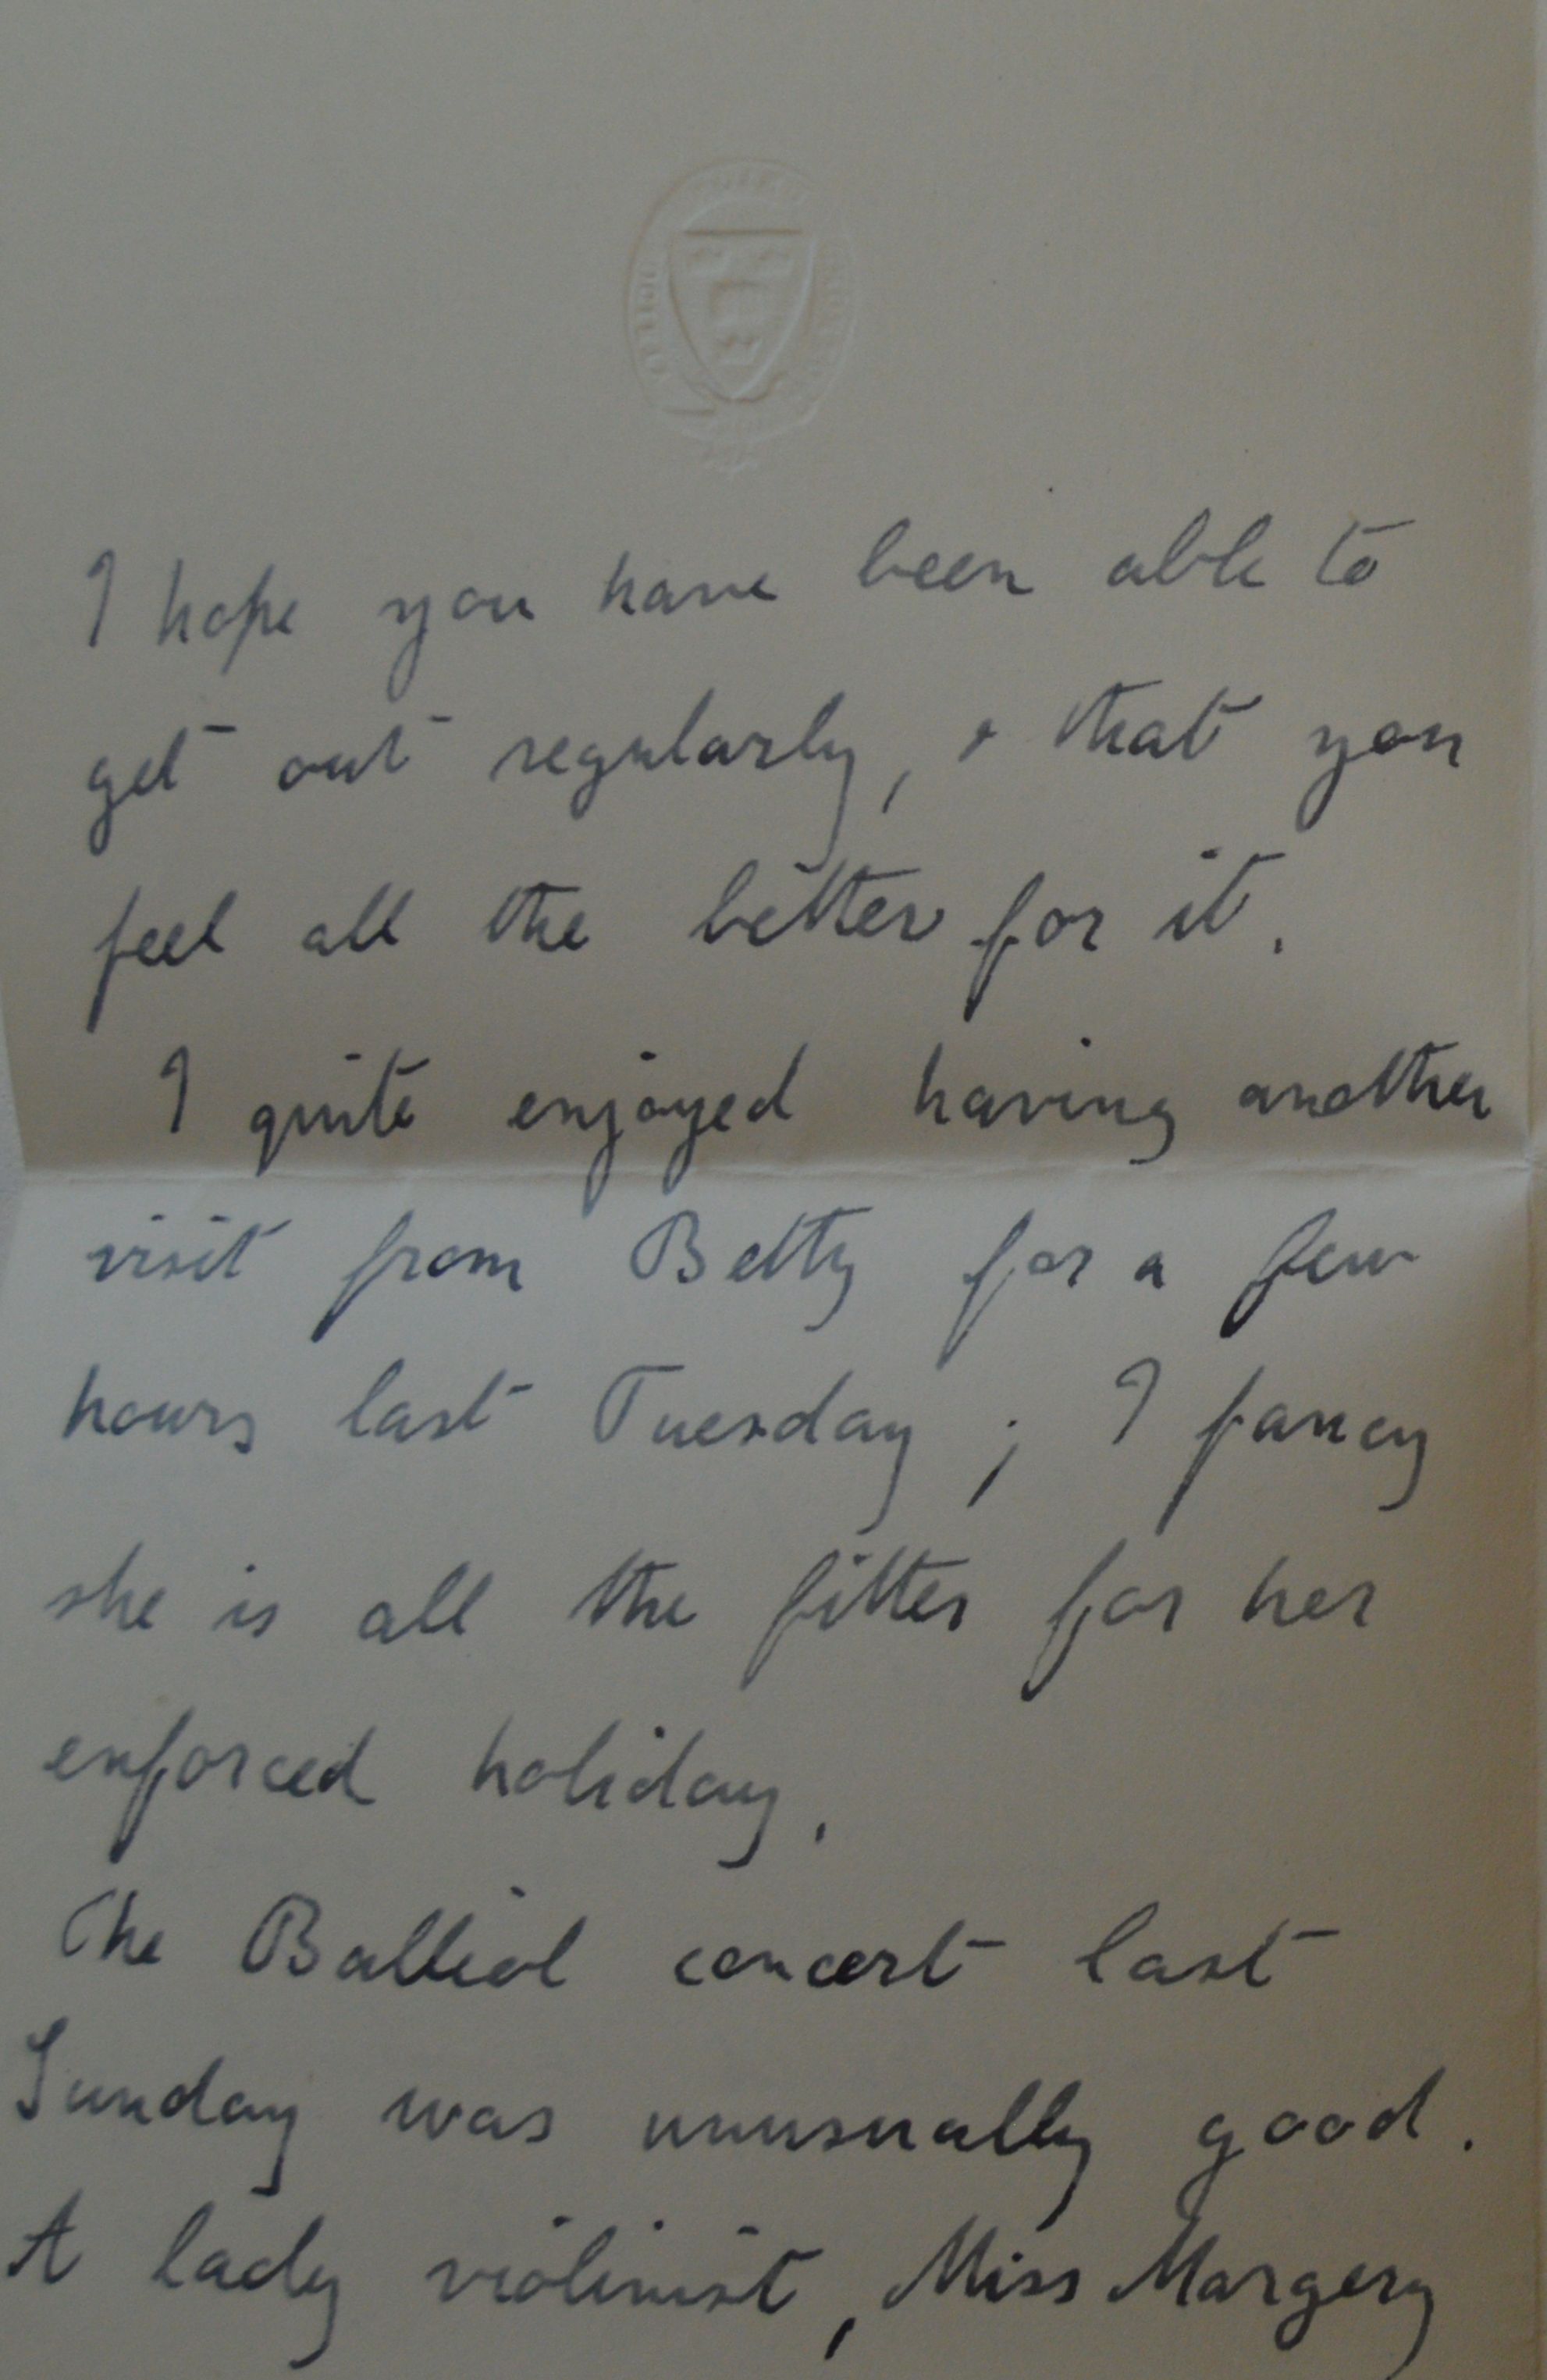 I hope you have been able to
get out regularly, & that you
feel all the better for it.
I quite enjoyed having another
visit from Betty for a few
hours last Tuesday ; I fancy
she is all the fitter for her
enforced holiday.
The Balliol concert last
Sunday was unusually good.
A lady violinist, Miss Margery